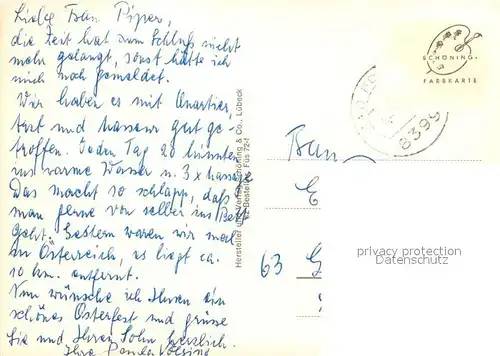 Liebe Frau Piper,
die Zeit hat zum Schluß nicht
mehr gelangt, sonst hätte ich
mich noch gemeldet.
Wir haben es mit Quartier,
Arzt und Masseur gut ge-
troffen. Jeden Tag 20 Minuten
ins warme Wasser u. 3 x Massage
Das macht so schlapp, daß
man gerne von selber ins Bett
geht. Gestern waren wir mal
in Österreich, es liegt ca.
10 km. entfernt.
Nun wünsche ich Ihnen ein
schönes Osterfest und grüße
Sie und Ihren Sohn herzlich.
Ihre
Hersteller und Verlag Schöning & Co., Lübeck
Bestell-Nr. Füs 724
SCHÖNING-
FARBKARTE
8399
63 G
privacy protection
Datenschutz